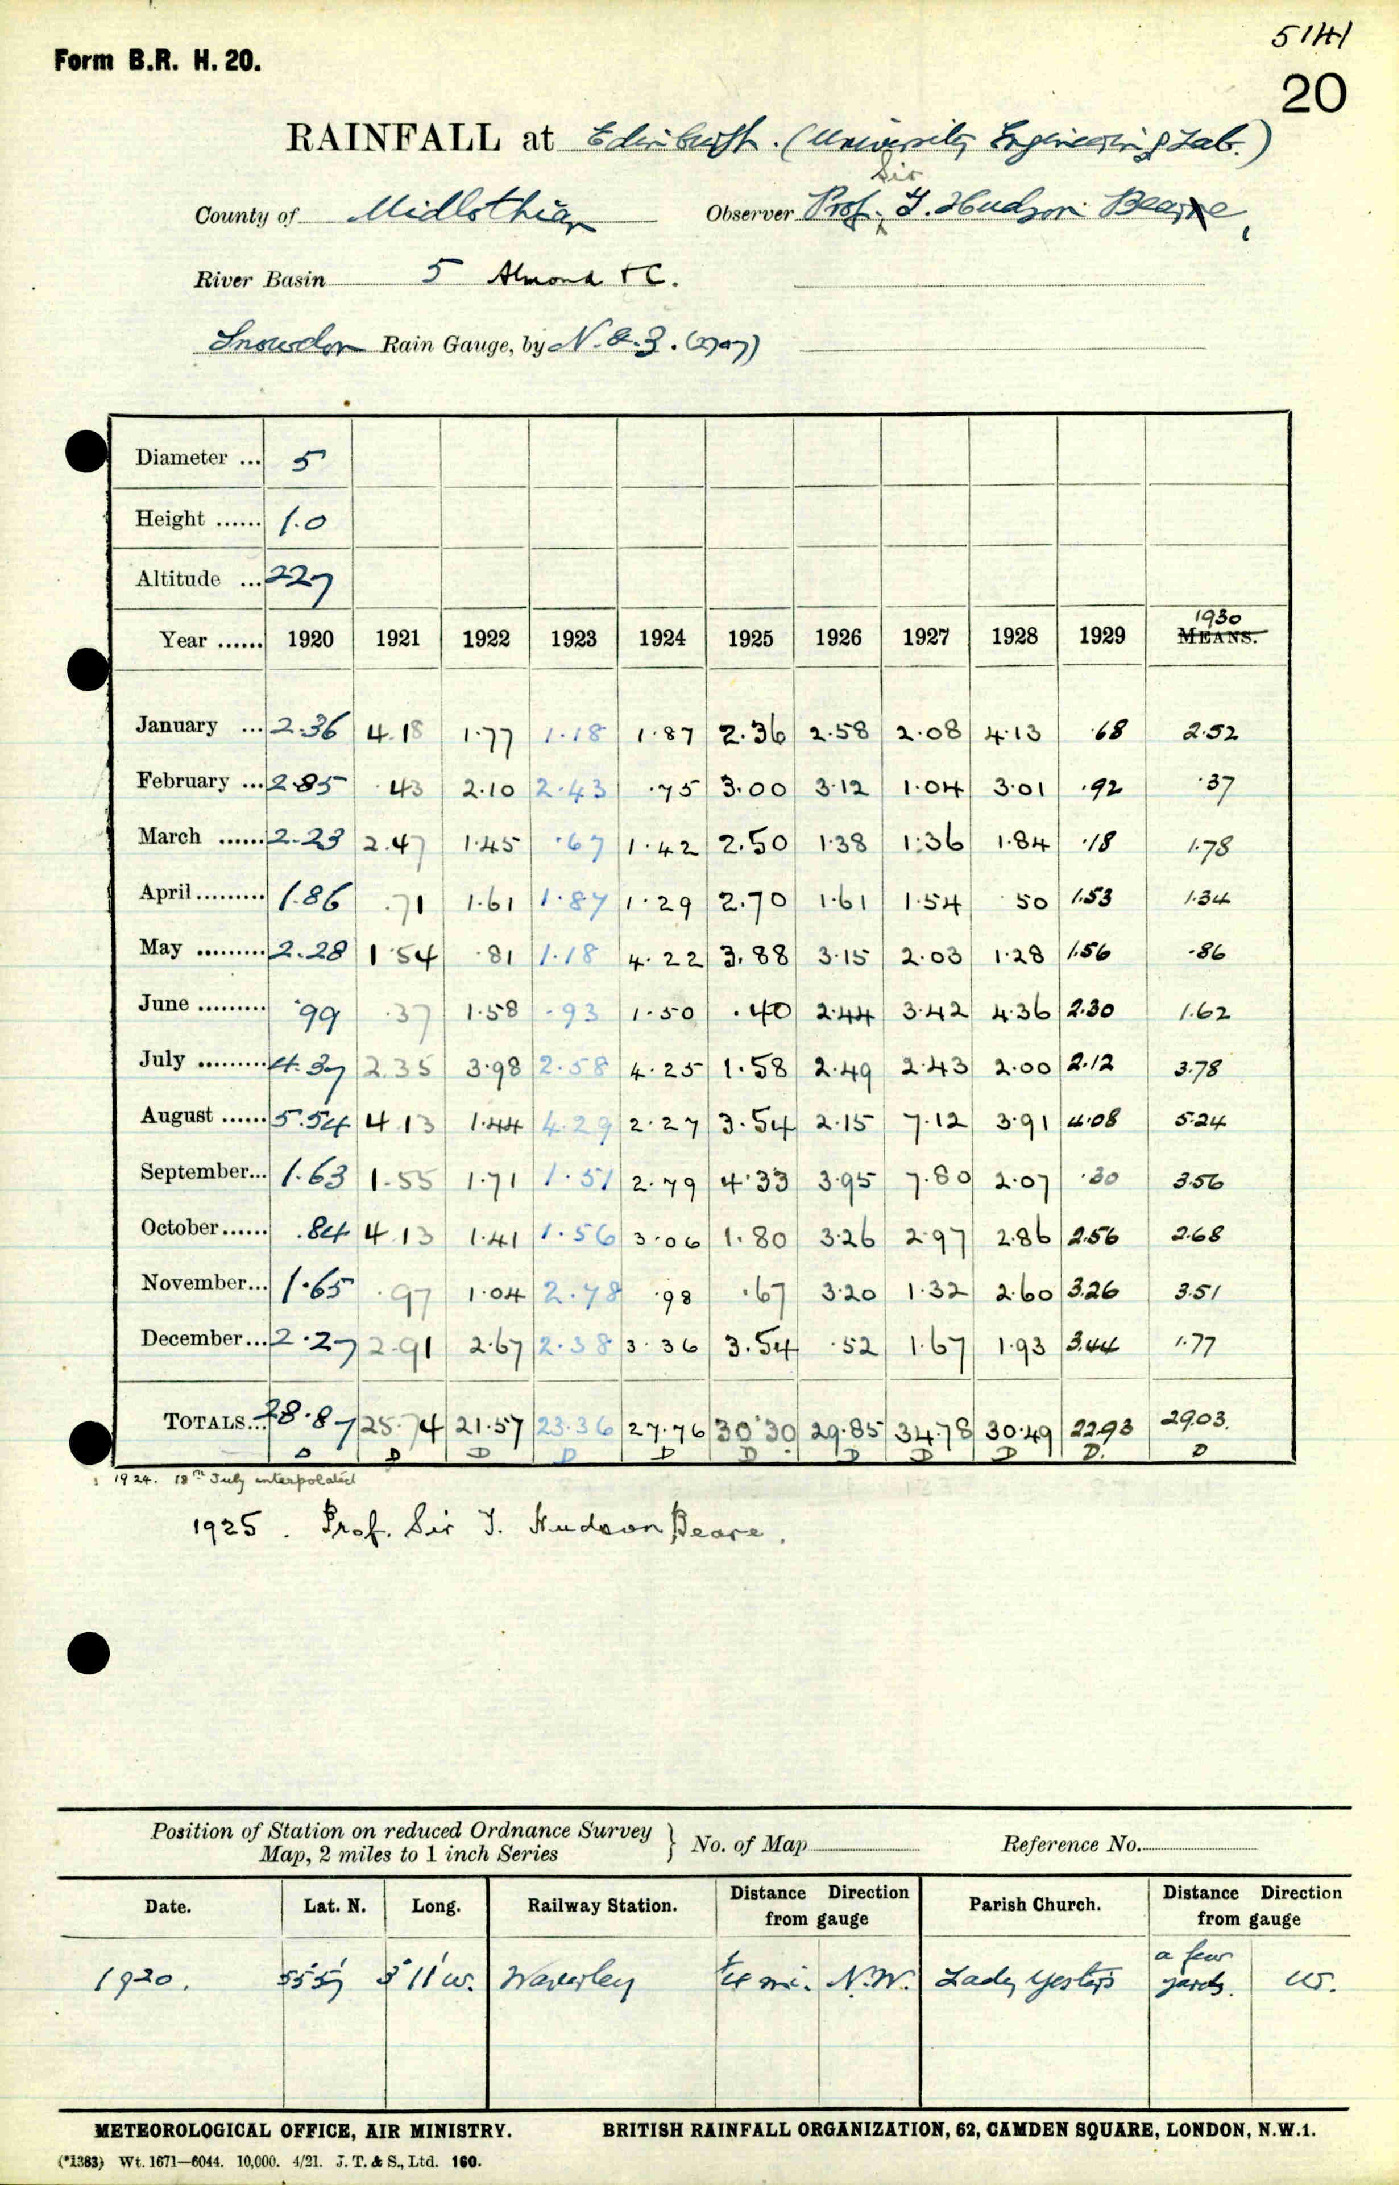 5141
Form B.R. H. 20.
20
RAINFALL at Edinburgh. (University Engineering Lab.)
Sir
County of Midlothian Observer Prof. T. Hudson Beare,
River Basin 5 Almond & C.
Snowdon Rain Gauge, by N. & Z.
Diameter ... 5
Height ...... 1.0
Altitude ... 227
1930
Year ...... 1920 1921 1922 1923 1924 1925 1926 1927 1928 1929 MEANS.
January ... 2.36 4.18 1.77 1.18 1.87 2.36 2.58 2.08 4.13 .68 2.52
February ... 2.85 .43 2.10 2.43 .75 3.00 3.12 1.04 3.01 .92 .37
March ...... 2.23 2.47 1.45 .67 1.42 2.50 1.38 1.36 1.84 .18 1.78
April ......... 1.86 .71 1.61 1.87 1.29 2.70 1.61 1.54 .50 1.53 1.34
May ......... 2.28 1.54 .81 1.18 4.22 3.88 3.15 2.03 1.28 1.56 .86
June ......... .99 .37 1.58 .93 1.50 .40 2.44 3.42 4.36 2.30 1.62
July ......... 4.37 2.35 3.98 2.58 4.25 1.58 2.49 2.43 2.00 2.12 3.78
August ...... 5.54 4.13 1.44 4.29 2.27 3.54 2.15 7.12 3.91 4.08 5.24
September... 1.63 1.55 1.71 1.51 2.79 4.33 3.95 7.80 2.07 .30 3.56
October...... .84 4.13 1.41 1.56 3.06 1.80 3.26 2.97 2.86 2.56 2.68
November... 1.65 .97 1.04 2.78 .98 .67 3.20 1.32 2.60 3.26 3.51
December... 2.27 2.91 2.67 2.38 3.36 3.54 .52 1.67 1.93 3.44 1.77
TOTALS... 28.87 25.74 21.57 23.36 27.76 30.30 29.85 34.78 30.49 22.93 29.03.
D D D D D D D D D D. D
1924. 18th July interpolated
1925. Prof. Sir T. Hudson Beare.
Position of Station on reduced Ordnance Survey
Map, 2 miles to 1 inch Series } No. of Map Reference No.
Date. Lat. N. Long. Railway Station. Distance Direction from gauge Parish Church. Distance Direction from gauge
1920. 55°57' 3°11'W. Waverley 1/4 mi. N.W. Lady Yester's a few yards. W.
METEOROLOGICAL OFFICE, AIR MINISTRY. BRITISH RAINFALL ORGANIZATION, 62, CAMDEN SQUARE, LONDON, N.W.1.
(*1383) Wt. 1671—6044. 10,000. 4/21. J. T. & S., Ltd. 160.